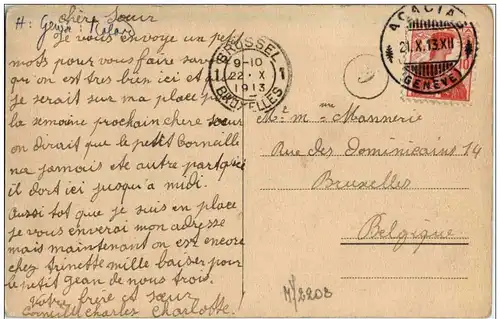 H: Genja: Kolar
chère Sœur
Je vous envoye un petit
mots pour vous faire savoir
qu'on est tres bien ici et
je serait sur ma place
la semaine prochain chere sœur
on dirait que le petit Corneille
na jamais ete autre part qu'ici
il dort ici jusqu'a midi.
Aussi tot que je suis en place
je vous enverai mon adresse
mais maintenant on est encore
chez trinette mille baiser pour
le petit jean de nous trois.
Votre frere et sœur
Corneille Charles Charlotte.
BRUSSEL
9-10
1 22·X 1
1913
BRUXELLES
ACACIAS
21.X.13.XII
(GENÈVE)
Mr & Mme Mannerie
Rue des Dominicains 14
Bruxelles
Belgique
M/2203